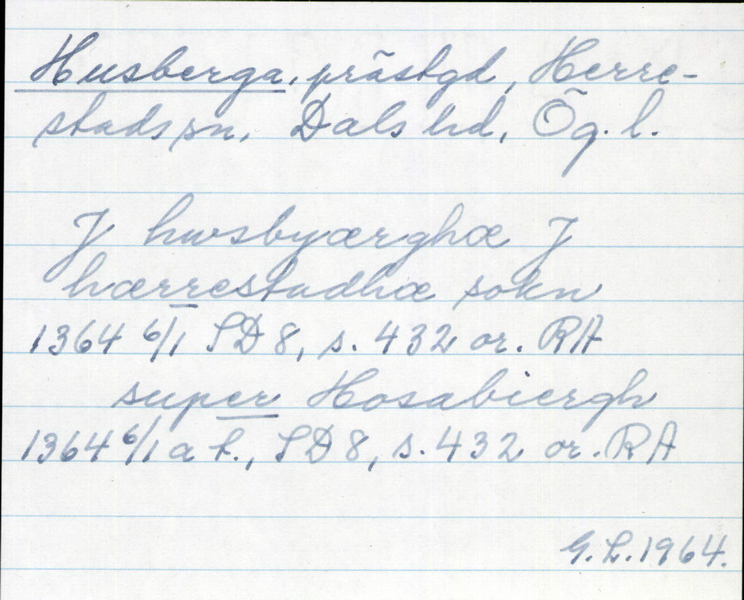 Husberga, prästgd, Herre-
stads sn, Dals hd, Ög. l.
J hwsbyærghæ J
hærrestadhæ sokn
1364 6/1 SD 8, s. 432 or. RA
super Hosabiergh
1364 6/1 a t., SD 8, s. 432 or. RA
G. L. 1964.